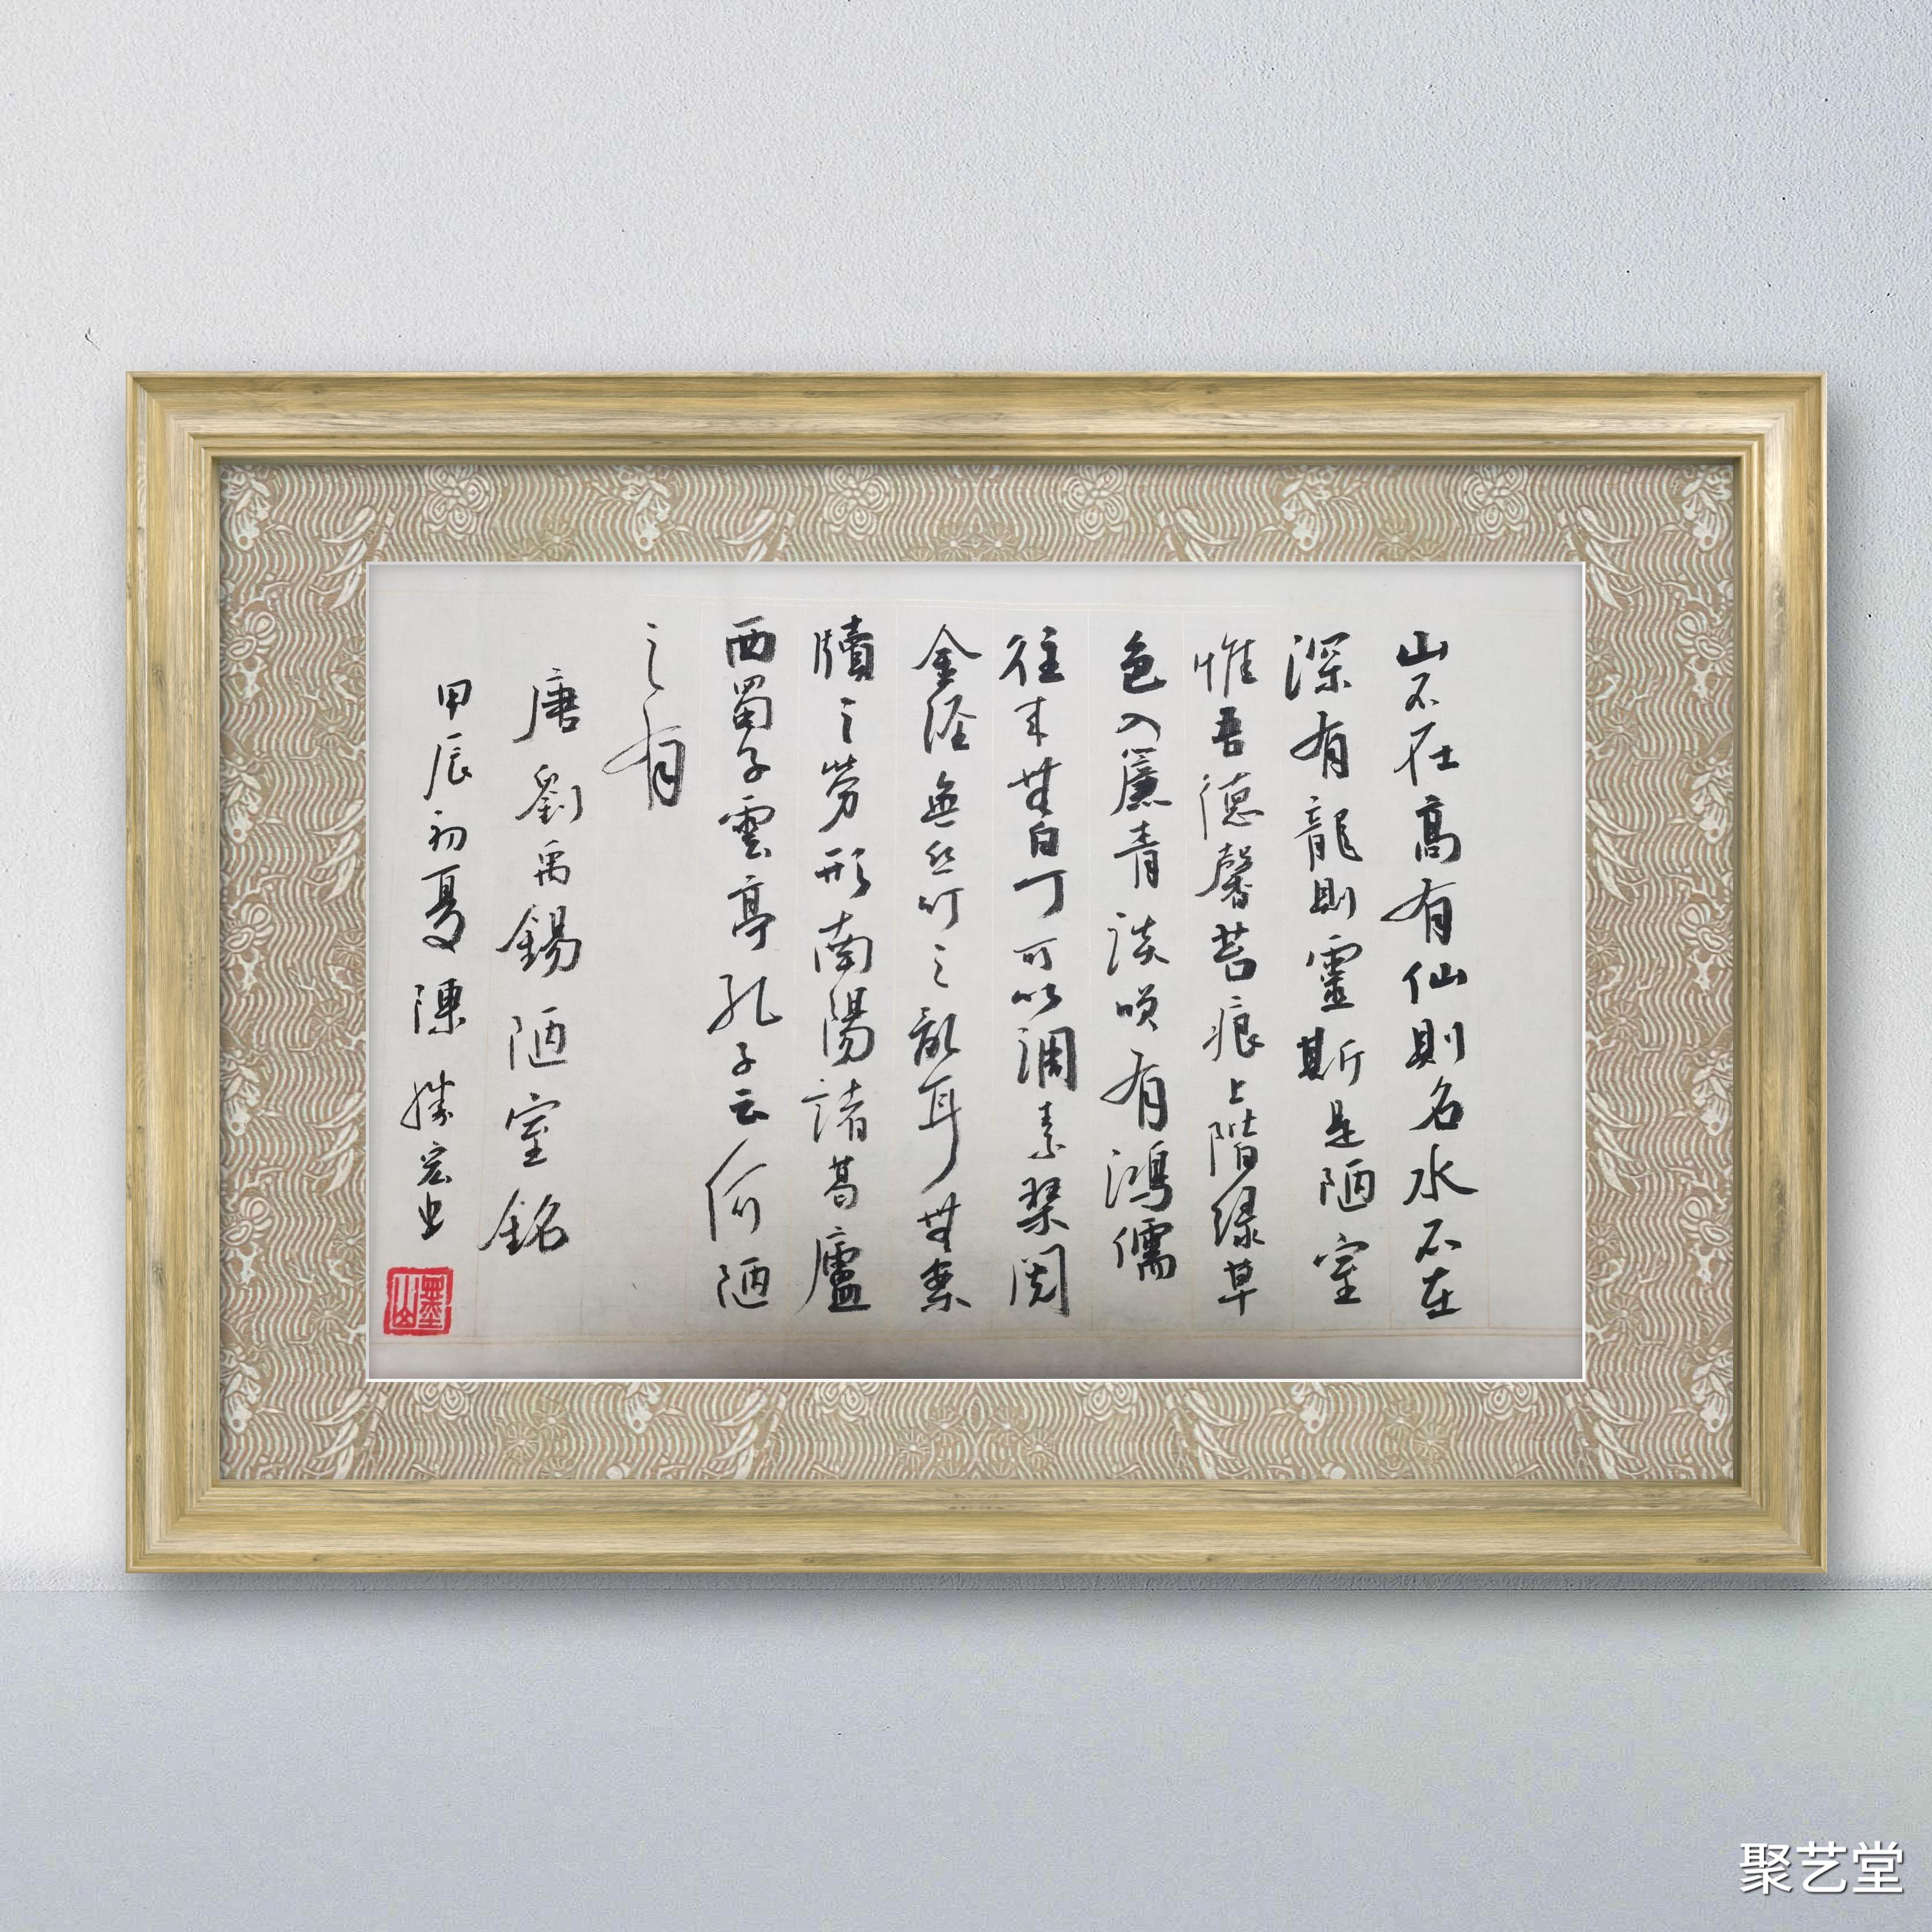 山不在高有仙則名水不在
深有龍則靈斯是陋室
惟吾德馨苔痕上階緑草
色入簾青談咲有鴻儒
往来無白丁可以調素琴閲
金経無丝竹之亂耳無案
牘之勞形南陽諸葛廬
西蜀子雲亭孔子云何陋
之有
唐劉禹錫陋室銘
甲辰初夏陳勝宏书
聚艺堂